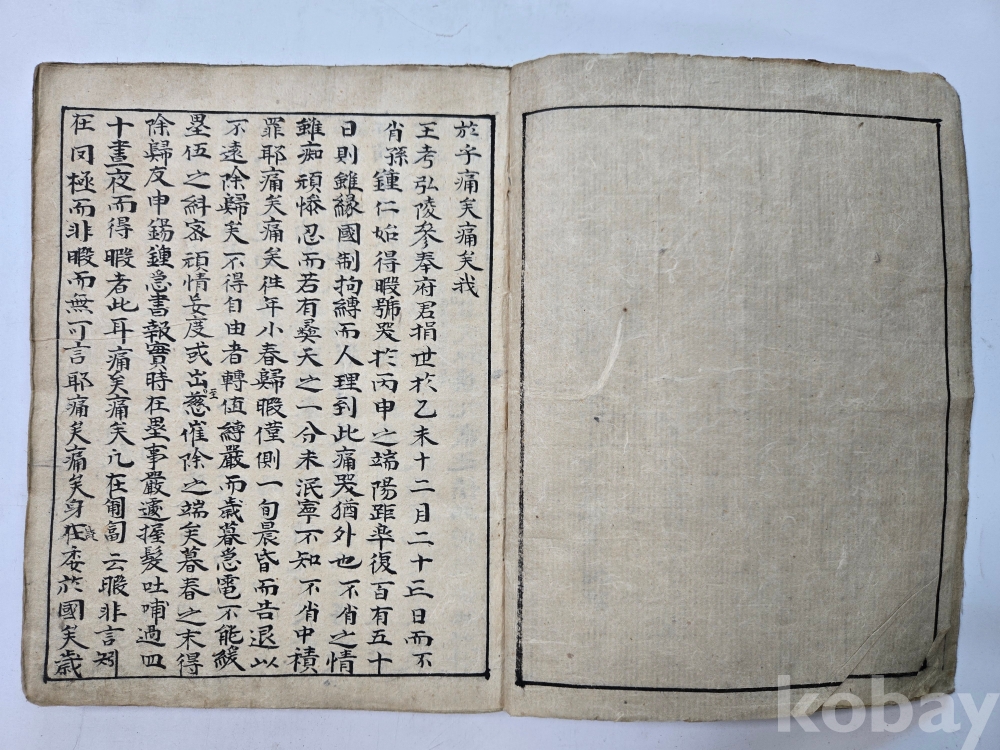 於乎痛矣痛矣我
王考弘陵參奉府君捐世於乙未十二月二十三日而不
省孫鍾仁始得暇號哭於丙申之端陽距率復百有五十
日則雖緣國制拘縛而人理到此痛哭猶外也不省之情
雖痴頑慘忍而若有彛天之一分未泯寧不知不省中積
罪耶痛矣痛矣徃年小春歸暇僅側一旬晨昏而告退以
不遠除歸矣不得自由者轉値縛嚴而歲暮急電不能緩
壘伍之紏密頑情妄度或出至慈催除之端矣暮春之末得
除歸友申錫鍾急書報實時在壘事嚴遽握髮吐哺過四
十晝夜而得暇者此耳痛矣痛矣凢在匍匐云暇非言矧
在罔極而非暇而無可言耶痛矣痛矣身在委於國矣歲
kobay